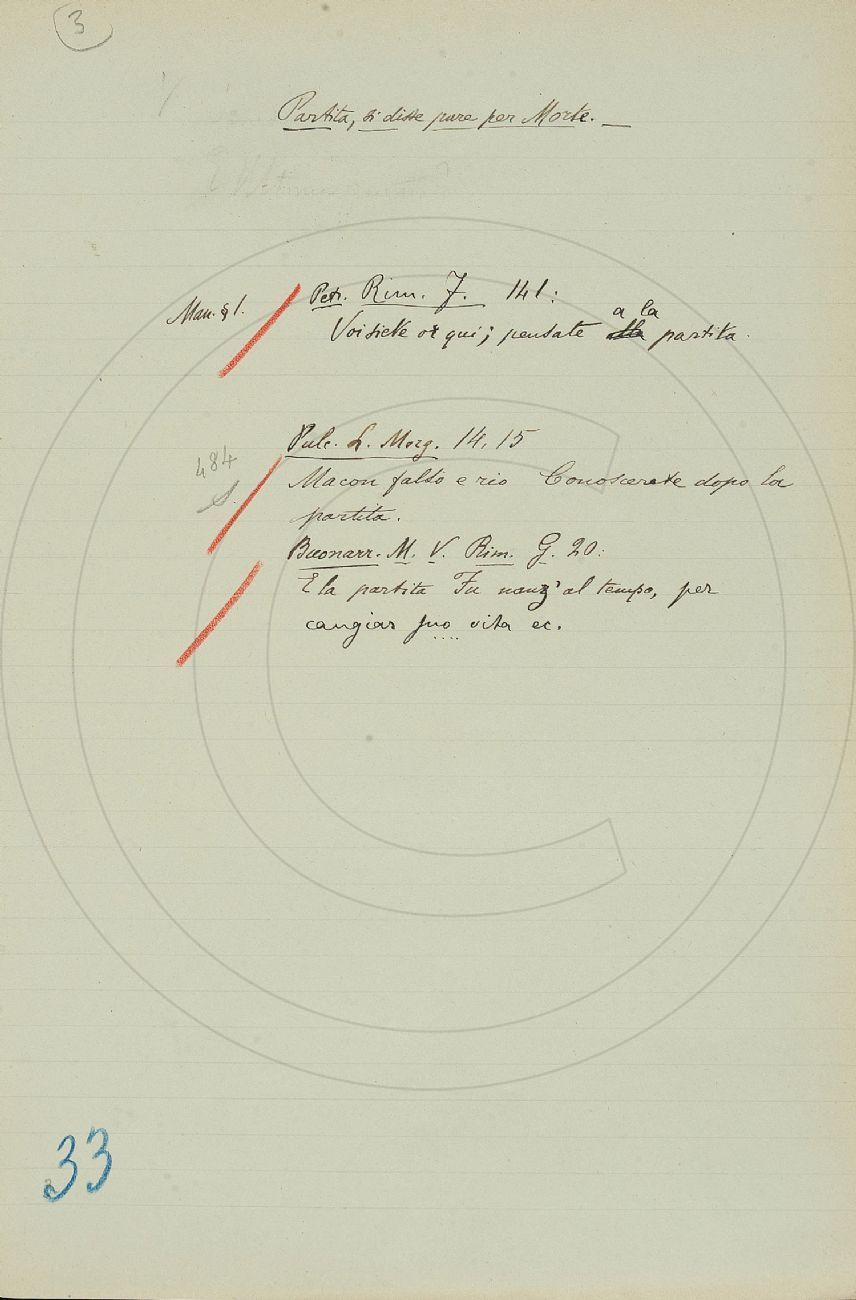 3
Partita, si disse pure per Morte. —
Man. § 1.
Petr. Rim. F. 141:
Voi siete or qui; pensate a la partita.
Pulc. L. Morg. 14, 15
484
S.
Macon falso e rio Conoscerete dopo la
partita.
Buonarr. M. V. Rim. G. 20:
E la partita Fu nanz' al tempo, per
cangiar suo vita ec.
33